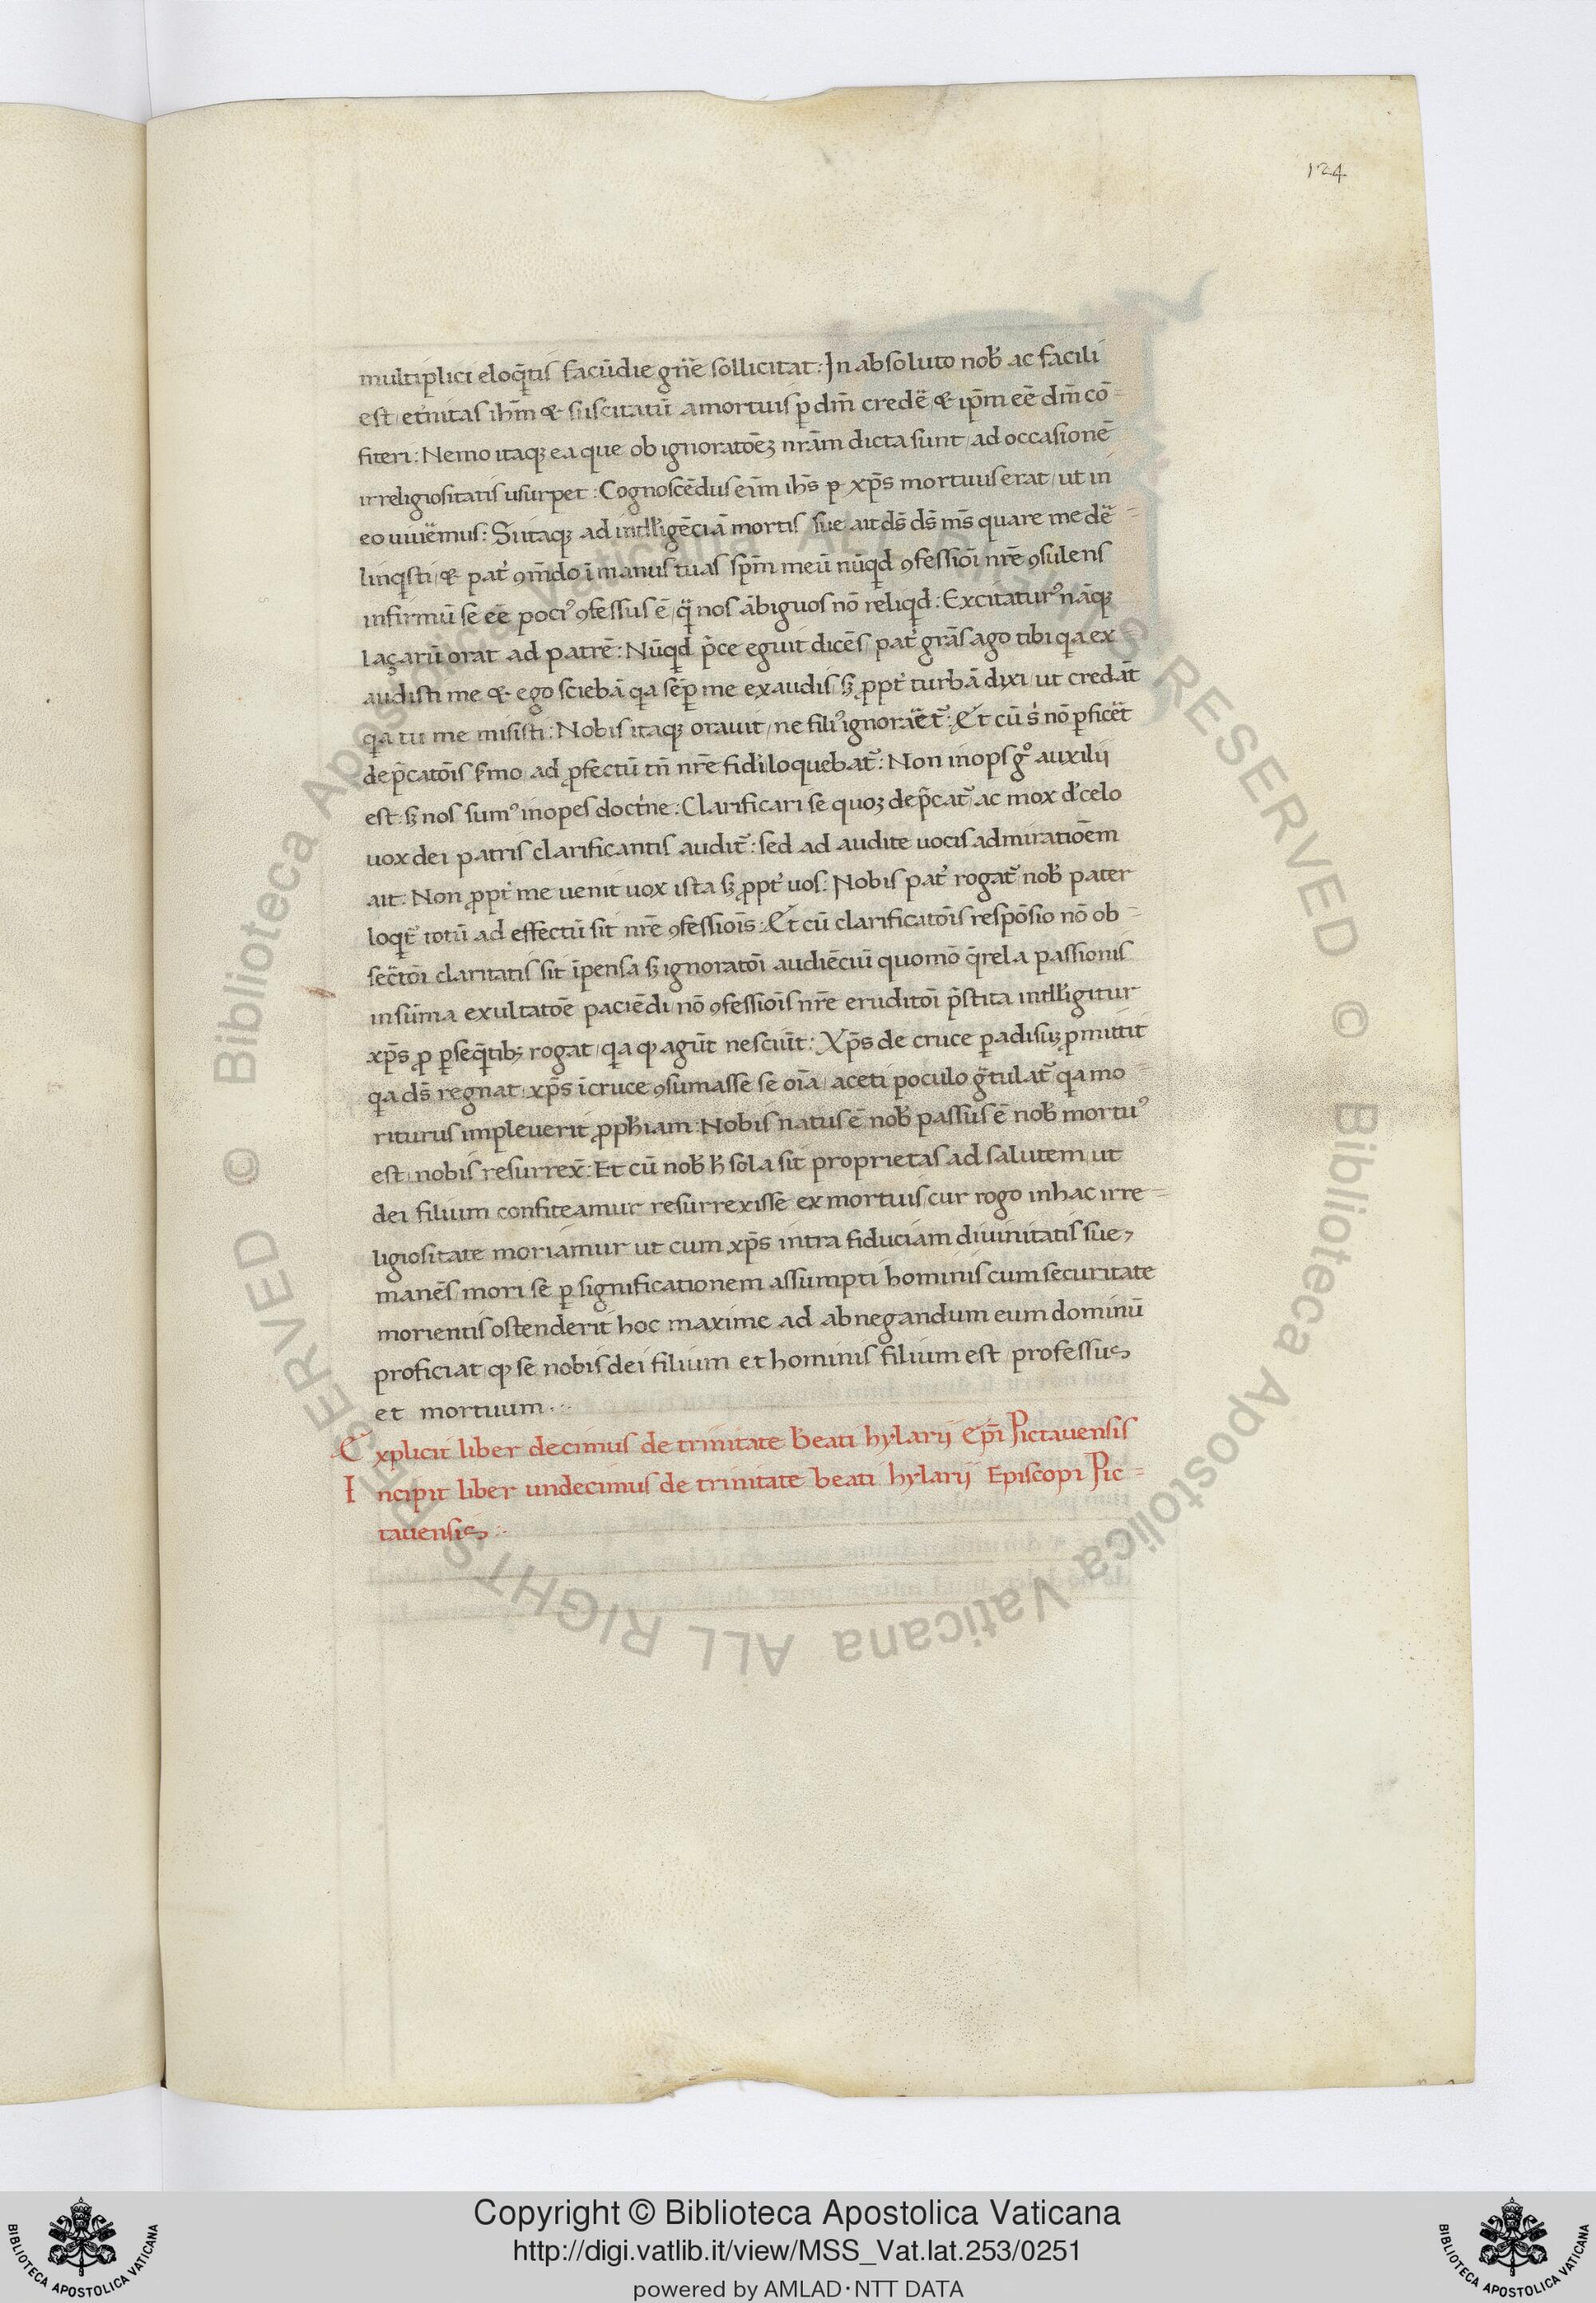 124
multiplici eloq̄tis facūdie gn̄e sollicitat: In absoluto nob̄ ac facili
est, et̄nitas ih̄m & suscitatū a mortuis ꝑ dm̄ crede᷑ & ip̄m eē dm̄ cō-
fiteri: Nemo itaqꝫ ea que ob ignoratōeꝫ nr̄am dicta sunt, ad occasionē
irreligiositatis usurpet: Cognoscēdus eīm ih̄s ꝑ xp̄s mortuus erat, ut in
eo uiue᷑mus: Si itaqꝫ ad intll̓igēciā mortis sue ait ds̄ ds̄ ms̄ quare me de᷑-
linqsti, & pat̓ ꝯm̄do ī manus tuas sp̄m meū nūqd ꝯfessiōi nr̄e ꝯsulens
infirmū se eē poci᷒ ꝯfessus ē, q᷑ nos ābiguos nō reliqd: Excitatur᷒ nāqꝫ
laçarū orat ad patrē: Nūqd p̄ce eguit dicēs, pat̓ grās ago tibi qa ex
audisti me & ego sciebā qa sēꝑ me exaudis, sꝫ ꝓpt̓ turbā dixi, ut credāt
qa tu me misisti: Nobis itaqꝫ orauit, ne fili᷒ ignorare᷑t᷑: Et cū s̓ nō ꝓfice᷑t
dep̄catōis s̓mo, ad ꝓfectū tn̄ nr̄e fidi loquebat᷑: Non inops gͦ auxilii
est: sꝫ nos sum᷒ inopes doct̓ne: Clarificari se quoꝫ dep̄cat᷑ ac mox d̓ celo
uox dei patris clarificantis audit᷑: sed ad audite uocis admiratiōem
ait: Non ꝓpt̓ me uenit uox ista sꝫ ꝓpt̓ uos: Nobis pat̓ rogat᷑ nob̄ pater
loqt᷑ totū ad effectū sit nr̄e ꝯfessiois̄: Et cū clarificatōis respōsio nō ob-
secrtōi claritatis sit īpensa sꝫ ignoratōi audiēciū quomō q̄rela passionis
in sūma exultatōe paciēdi, nō ꝯfessiois̄ nr̄e eruditōi p̄stita intll̓igitur
xp̄s ꝓ ꝑseq̄tibꝫ rogat, qa qꝫ agūt nesciūt: Xp̄s de cruce ꝑadisuꝫ ꝓmittit
qa ds̄ regnat, xp̄s ī cruce ꝯsumasse se oīa, aceti poculo g᷑tulat᷑ qa mo-
riturus impleuerit ꝓph̄iam: Nobis natus ē nob̄ passus ē nob̄ mortu᷒
est, nobis resurrex̄: Et cū nob̄ h̄ sola sit proprietas ad salutem, ut
dei filium confiteamur resurrexisse ex mortuis, cur rogo in hac irre-
ligiositate moriamur ut cum xp̄s intra fiduciam diuinitatis sue
manēs mori se ꝑ significationem assumpti hominis cum securitate
morientis ostenderit hoc maxime ad abnegandum eum dominū
proficiat, qꝫ se nobis dei filium et hominis filium est, professus
et mortuum.
Explicit liber decimus de trinitate beati hylarij Ep̄i Pictauensis
Incipit liber undecimus de trinitate beati hylarij Episcopi Pic-
tauensis.
© Biblioteca Apostolica Vaticana ALL RIGHTS RESERVED
© Biblioteca Apostolica Vaticana ALL RIGHTS RESERVED
BIBLIOTECA APOSTOLICA VATICANA
Copyright © Biblioteca Apostolica Vaticana
http://digi.vatlib.it/view/MSS_Vat.lat.253/0251
powered by AMLAD·NTT DATA
BIBLIOTECA APOSTOLICA VATICANA